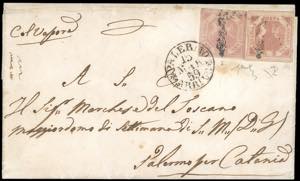 Col Vapore
PALERMO
ARRIVO
A S. E.
Il Sigr Marchese del Toscano
Maggiordomo di Settimana di S. M. (D. G.)
Palermo per Catania